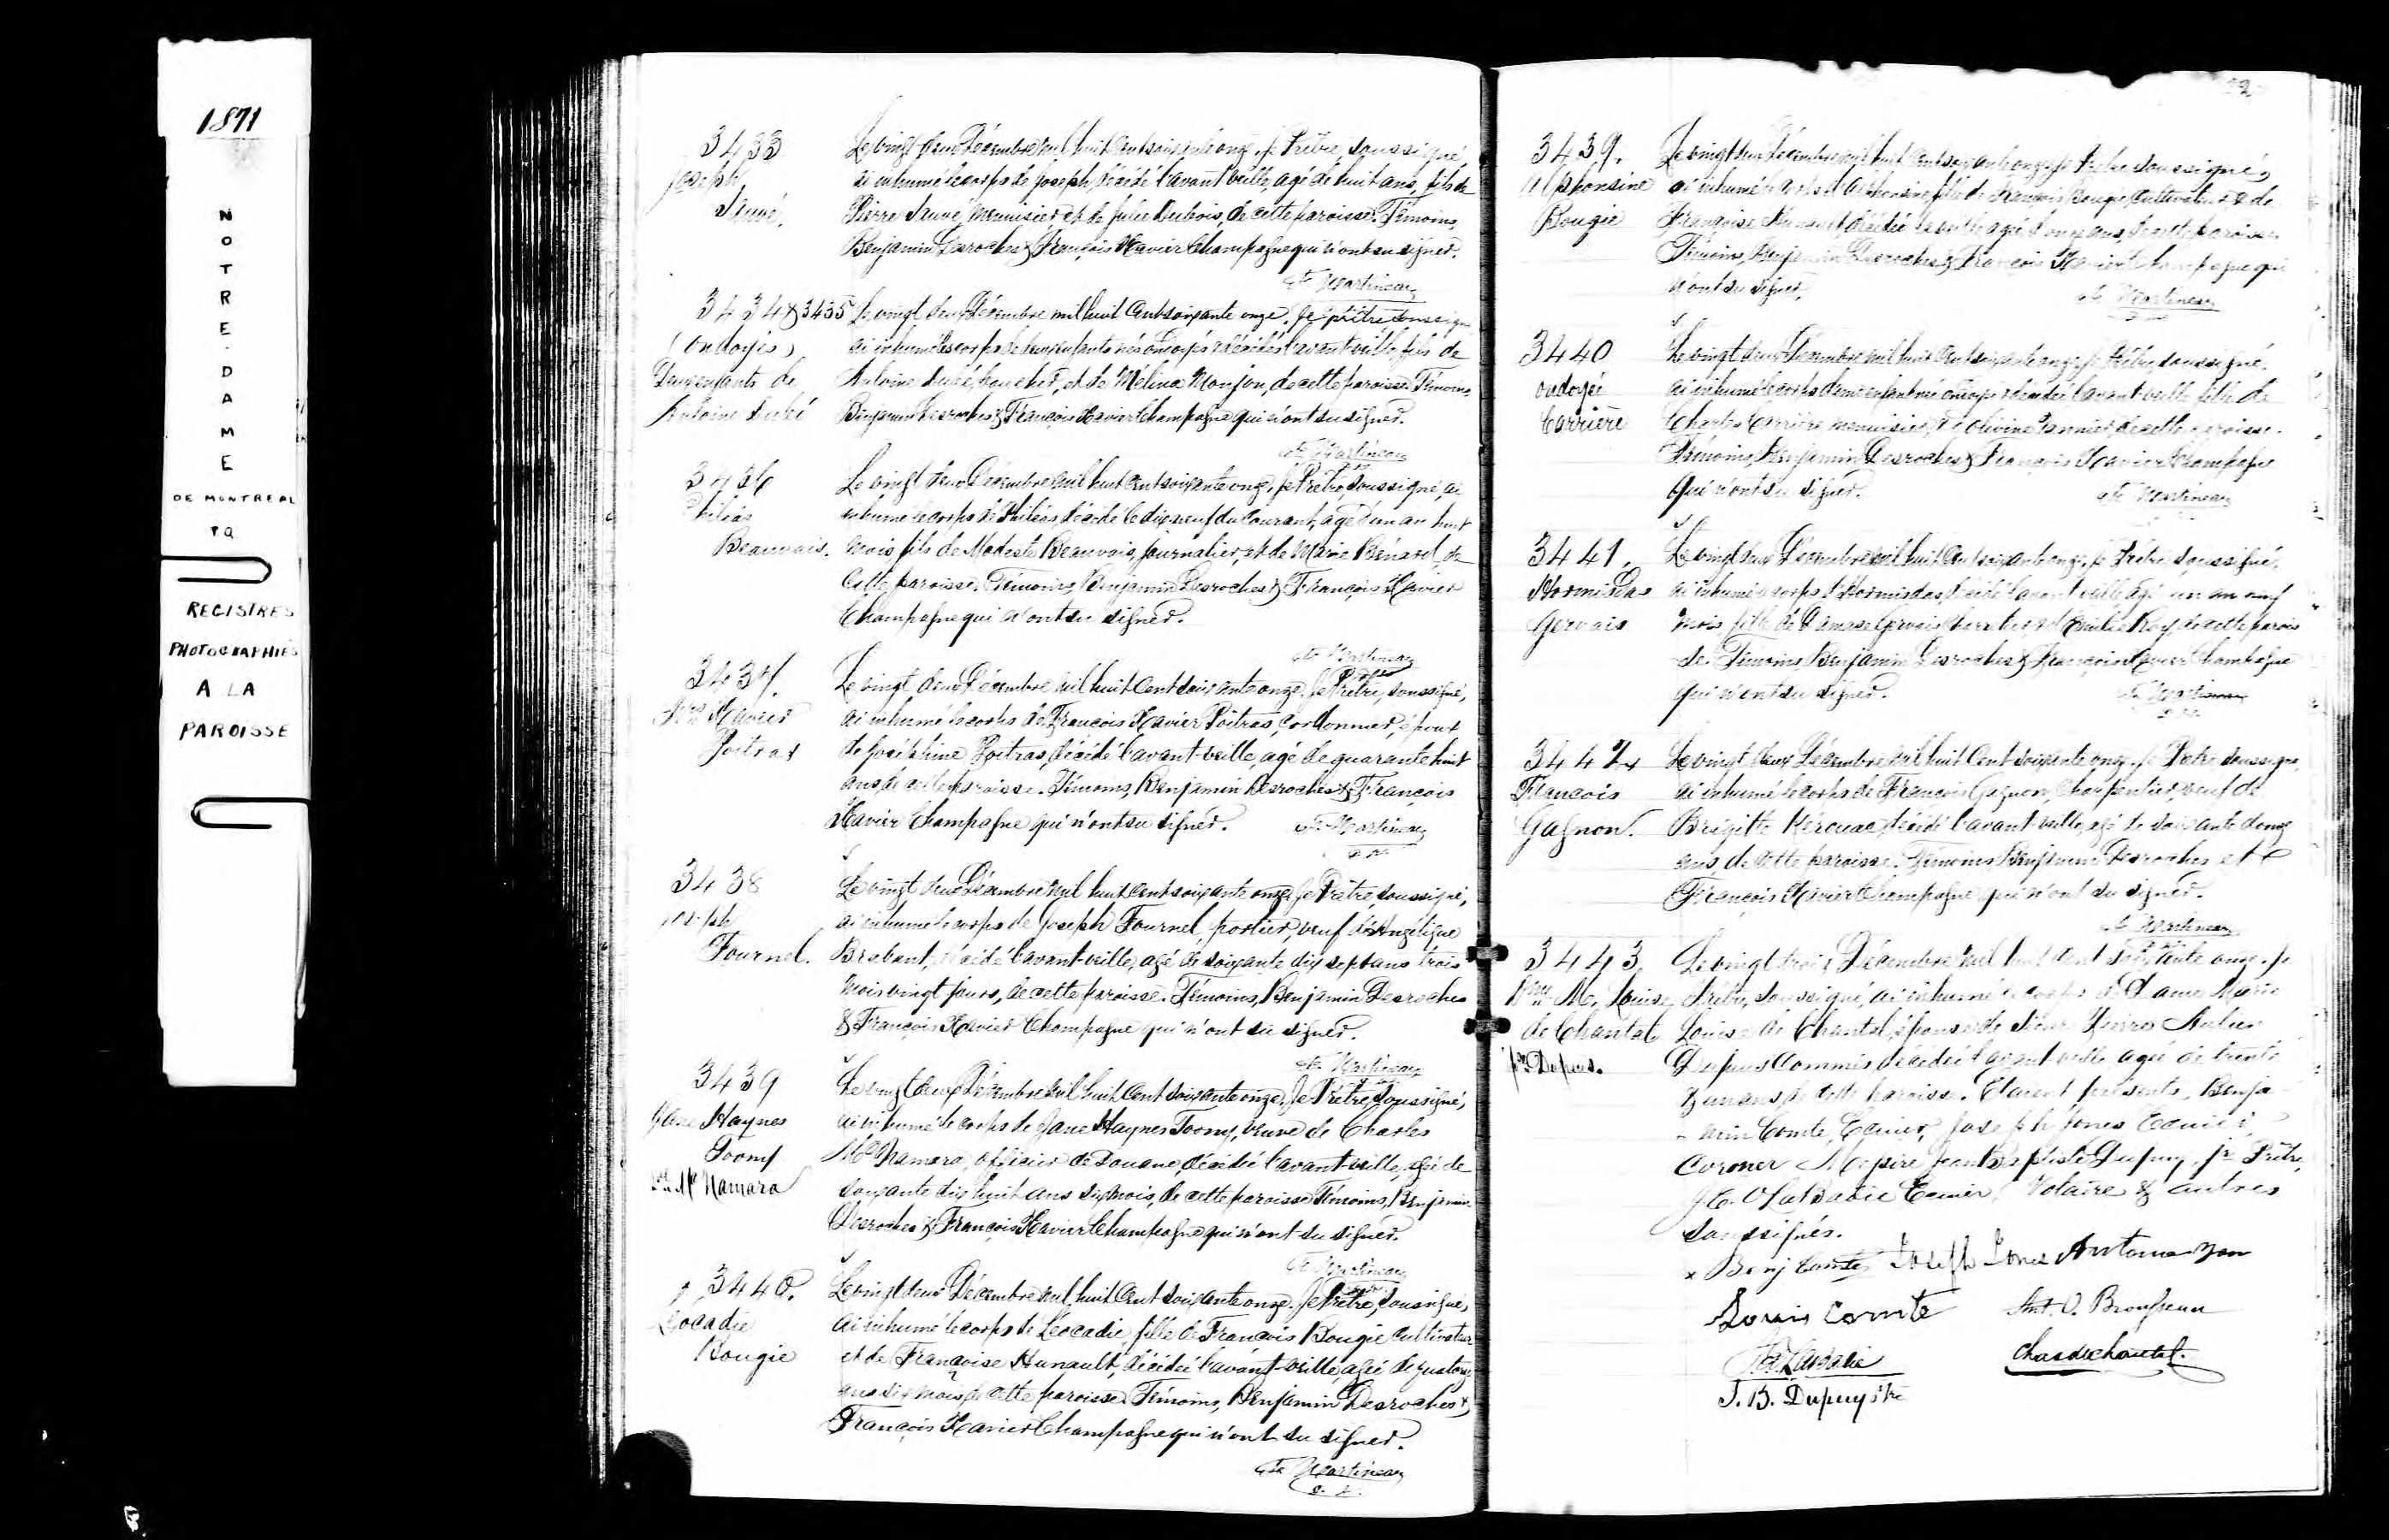 1871
NOTRE-DAME
DE MONTREAL
P.Q
REGISTRES
PHOTOGRAPHIÉS
A LA
PAROISSE
3433
Joseph
Sauvé.
Le vingt deux Décembre mil huit cent soixante onze, je Prêtre soussigné,
ai inhumé le corps de Joseph, décédé l'avant veille, agé de huit ans, fils de
Pierre Sauvé, menuisier et de Julie Dubois, de cette paroisse. Témoins,
Benjamin Desroches & François Xavier Champagne qui n'ont su signer.
Martineau
3434 & 3435
(Ondoyés)
Deux enfants de
Antoine Dubé
Le vingt deux Décembre mil huit cent soixante onze, je prêtre soussigné
ai inhumé les corps de deux enfants nés ondoyés & décédés l'avant veille, fils de
Antoine Dubé, boucher, et de Mélina Monjon, de cette paroisse. Témoins
Benjamin Desroches & François Xavier Champagne qui n'ont su signer.
Martineau
3436
Philéas
Beauvais.
Le vingt deux Décembre mil huit cent soixante onze, je Prêtre, soussigné, ai
inhumé le corps de Philéas, décédé le dix neuf du courant, agé d'un an huit
mois fils de Modeste Beauvais, journalier, et de Marie Bénard, de
cette paroisse. Témoins, Benjamin Desroches & François Xavier
Champagne qui n'ont su signer.
Martineau
3437.
Frs Xavier
Poitras
Le vingt deux Décembre mil huit cent soixante onze, je Prêtre, soussigné,
ai inhumé le corps de François Xavier Poitras, cordonnier, époux
de Joséphine Poitras, décédé l'avant-veille, agé de quarante huit
ans, de cette paroisse. Témoins, Benjamin Desroches & François
Xavier Champagne qui n'ont su signer.
Martineau
3438
Joseph
Fournel.
Le vingt deux Décembre mil huit cent soixante onze, je Prêtre, soussigné,
ai inhumé le corps de Joseph Fournel, portier, veuf d'Angélique
Brabant, décédé l'avant-veille, agé de soixante dix sept ans trois
mois vingt jours, de cette paroisse. Témoins, Benjamin Desroches
& François Xavier Champagne qui n'ont su signer.
Martineau
3439
Jane Haynes
Toomy
Mc Namara
Le vingt deux Décembre mil huit cent soixante onze, je Prêtre, soussigné,
ai inhumé le corps de Jane Haynes Toomy, veuve de Charles
Mc Namara, officier de Douane, décédée l'avant-veille, agée de
soixante dix huit ans six mois, de cette paroisse. Témoins, Benjamin
Desroches & François Xavier Champagne qui n'ont su signer.
Martineau
3440.
Léocadie
Bougie
Le vingt deux Décembre mil huit cent soixante onze, je Prêtre, soussigné,
ai inhumé le corps de Léocadie, fille de François Bougie cultivateur
et de Françoise Hunault, décédée l'avant-veille, agée de quatorze
ans dix mois, de cette paroisse. Témoins, Benjamin Desroches &
François Xavier Champagne qui n'ont su signer.
Martineau
3439.
Alphonsine
Bougie
Le vingt deux Décembre mil huit cent soixante onze, je Prêtre soussigné,
ai inhumé le corps d'Alphonsine, fille de François Bougie cultivateur & de
Françoise Hunault, décédée la veille agée d'onze ans, de cette paroisse.
Témoins, Benjamin Desroches & François Xavier Champagne qui
n'ont su signer.
Martineau
3440
ondoyée
Carrière
Le vingt deux Décembre mil huit cent soixante onze, je Prêtre, soussigné,
ai inhumé le corps d'une enfant née ondoyée & décédée l'avant-veille fille de
Charles Carrière menuisier, & d'Olivine de cette paroisse.
Témoins, Benjamin Desroches & François Xavier Champagne
qui n'ont su signer.
Martineau
3441.
Hormisdas
Gervais
Le vingt deux Décembre mil huit cent soixante onze, je Prêtre soussigné,
ai inhumé le corps d'Hormisdas, décédé l'avant veille agé un an neuf
mois, fils de Damase Gervais charretier, & d'Emilie Roy, de cette parois
se. Témoins Benjamin Desroches & François Xavier Champagne
qui n'ont su signer.
Martineau
3442
François
Gagnon.
Le vingt deux Décembre mil huit cent soixante onze, je Prêtre soussigné,
ai inhumé le corps de François Gagnon, Charpentier, veuf de
Brigitte Kérouac, décédé l'avant-veille, agé de soixante douze
ans, de cette paroisse. Témoins Benjamin Desroches et
François Xavier Champagne qui n'ont su signer.
Martineau
3443.
Dme M. Louise
de Chantal
Dupuis.
Le vingt trois Décembre mil huit cent soixante onze, je
Prêtre, soussigné, ai inhumé le corps de Dame Marie
Louise de Chantal, épouse de Sieur Pierre
Dupuis Commis décédée l'avant veille agée de trente
ans de cette paroisse. Etaient présents, Benja
-min Comte, Ecuier, Joseph Jones Ecuier,
Coroner Messire Jean Baptiste Dupuy, jr. Prêtre,
Labadie Ecuier, Notaire & autres
soussignés.
x Benj Comte Joseph Jones Antoine
Louis Comte Ant. O. Brousseau
Labadie Chas de Chantal.
J. B. Dupuy Ptre